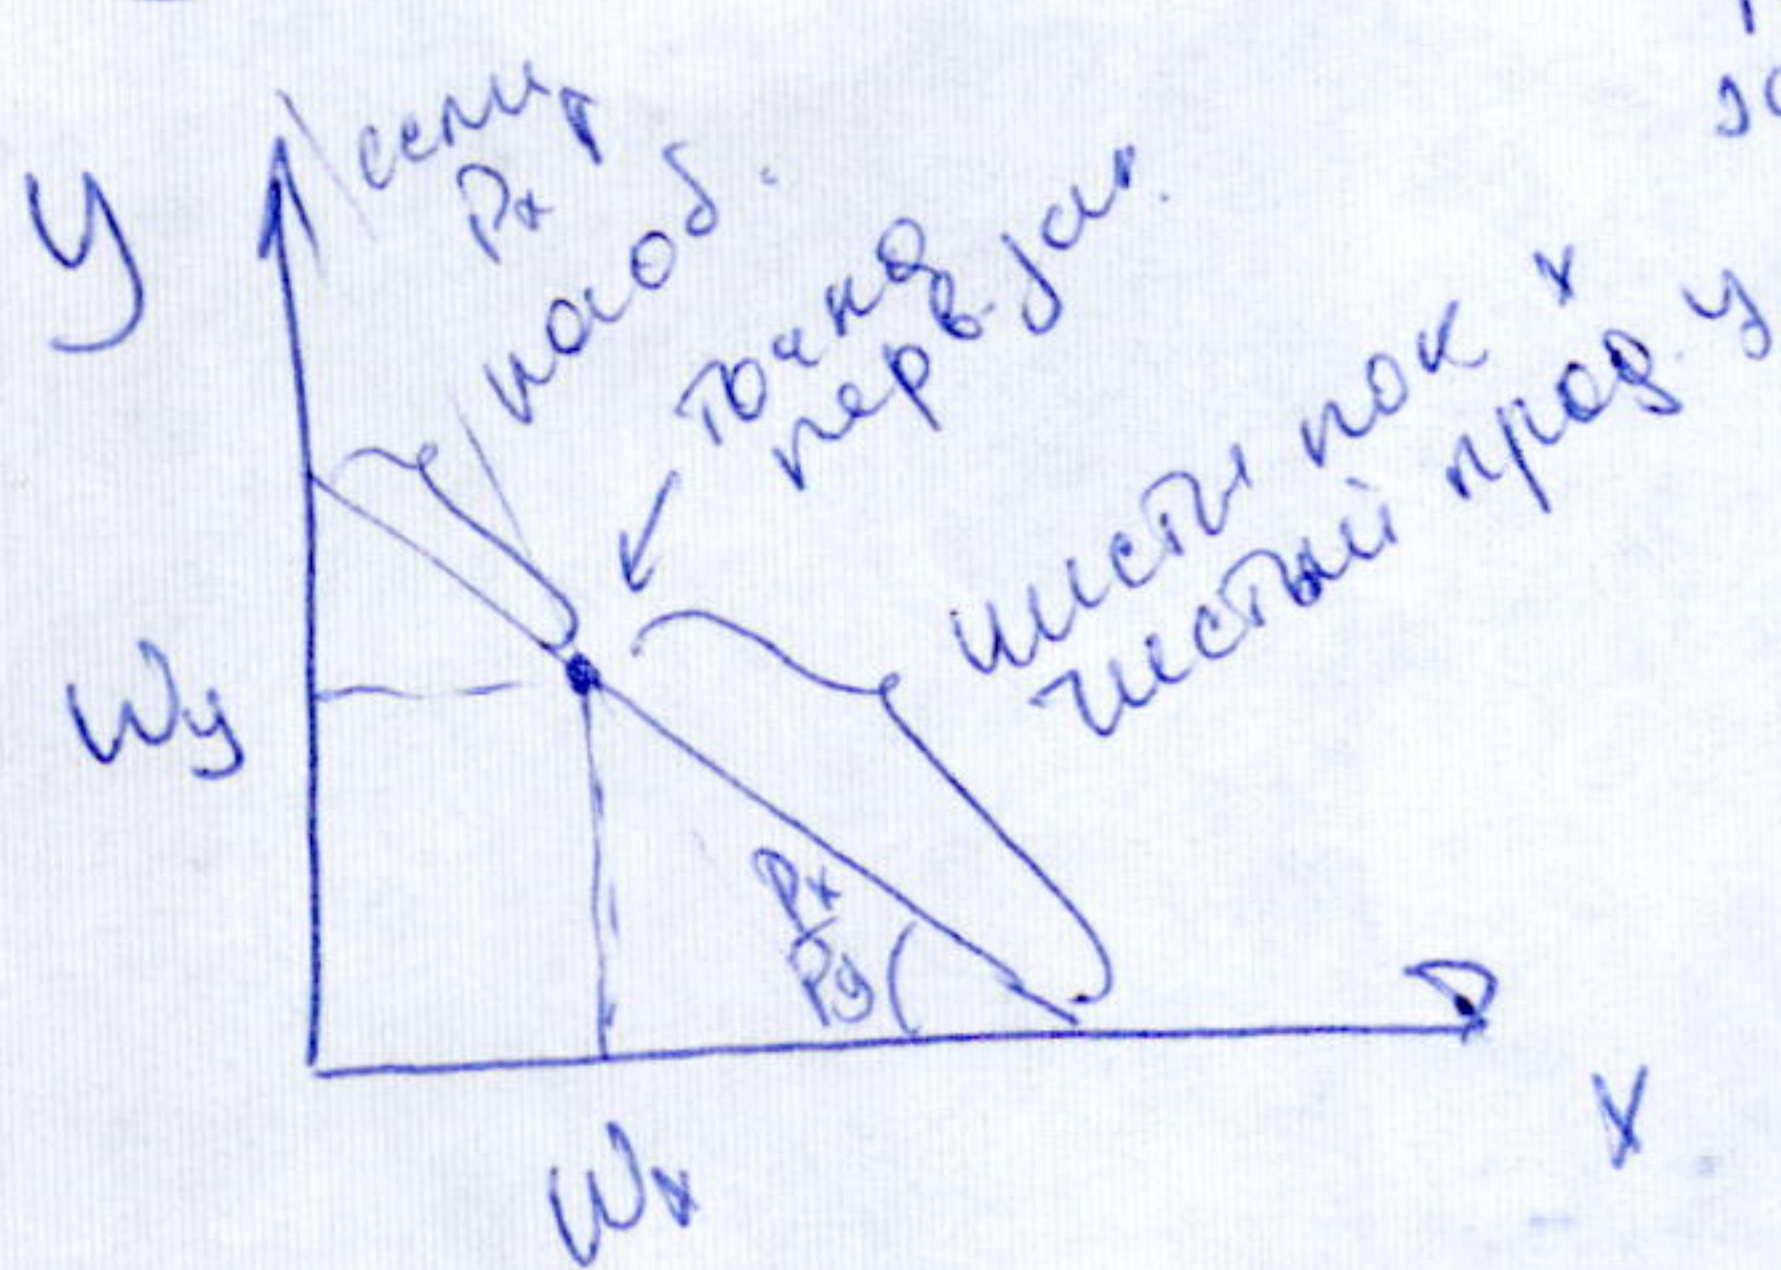 y
Px
наоб.
точка
перв. зап.
чисты пок x
чистый прод. y
Wy
Px
Py
Wx
x